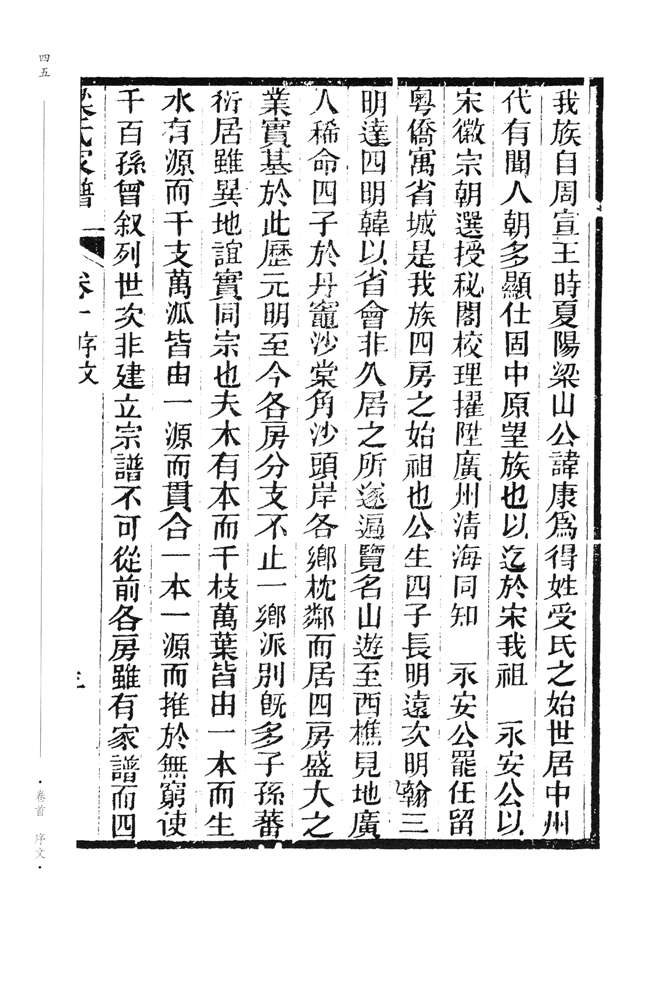 我族自周宣王時夏陽梁山公諱康爲得姓受氏之始世居中州
代有聞人朝多顯仕固中原望族也以迄於宋我祖　永安公以
宋徽宗朝選授秘閣校理擢陞廣州清海同知　永安公罷任留
粤僑寓省城是我族四房之始祖也公生四子長明遠次明翰三
明達四明韓以省會非久居之所遂遍覽名山遊至西樵見地廣
人稀命四子於丹竈沙棠角沙頭岸各鄉枕鄰而居四房盛大之
業實基於此歷元明至今各房分支不止一鄉派別旣多子孫蕃
衍居雖異地誼實同宗也夫木有本而千枝萬葉皆由一本而生
水有源而千支萬泒皆由一源而貫合一本一源而推於無窮使
千百孫曾叙列世次非建立宗譜不可從前各房雖有家譜而四
梁氏家譜　卷一序文　三
四五
·卷首　序文·